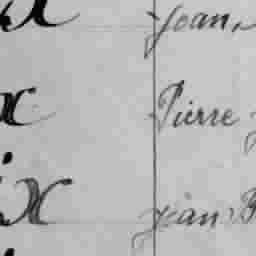 x Jean,
x Pierre
ix Jean B